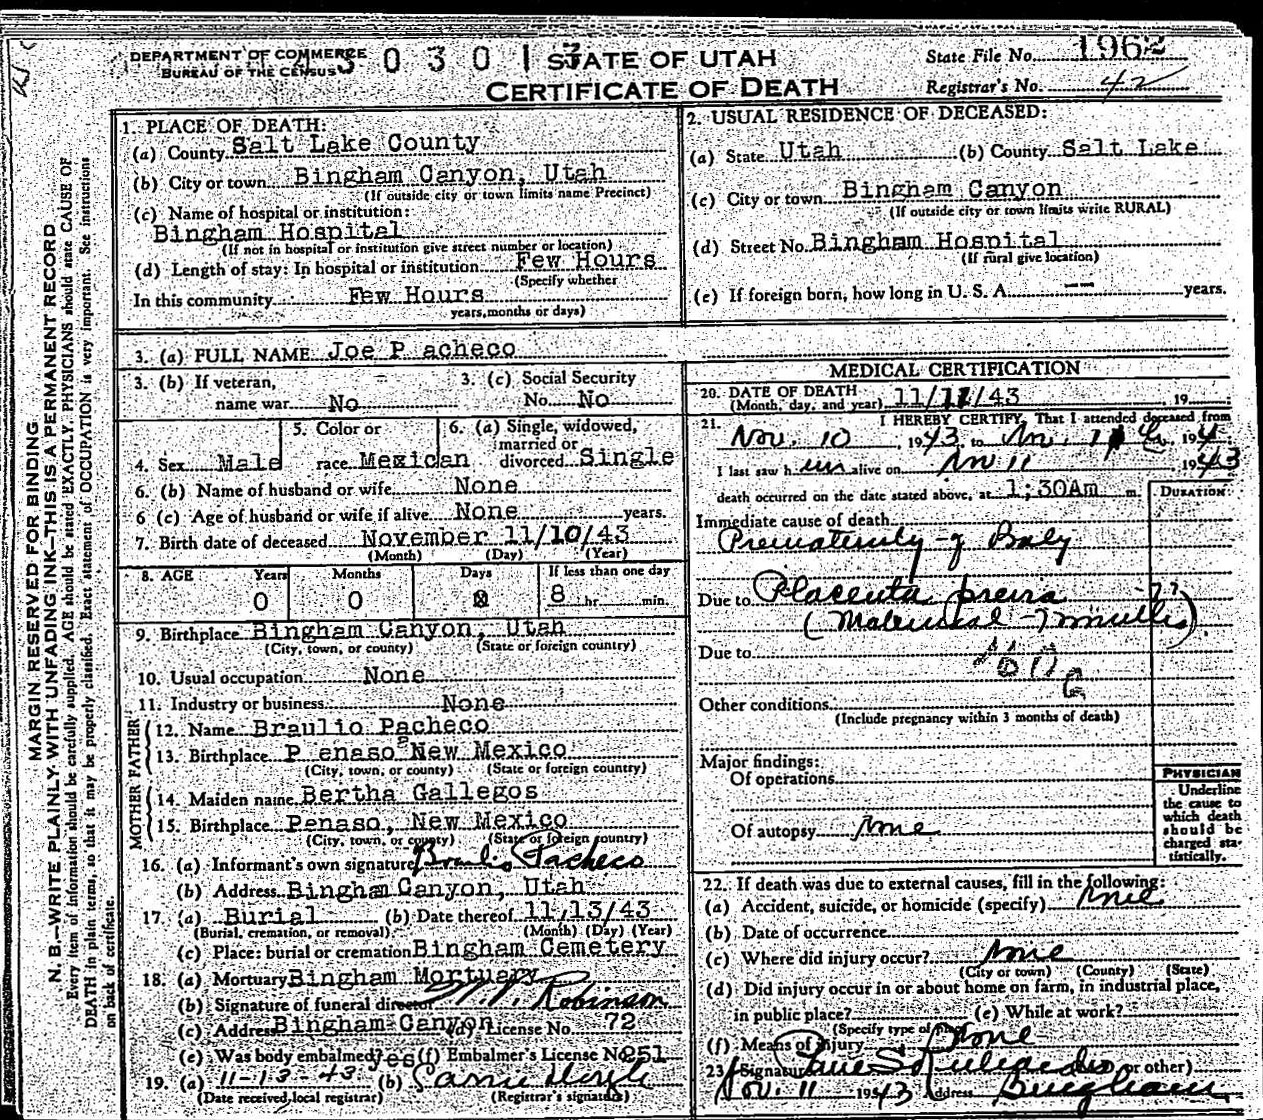 DEPARTMENT OF COMMERCE
BUREAU OF THE CENSUS
3 0 3 0 1 3
STATE OF UTAH
CERTIFICATE OF DEATH
State File No. 1962
Registrar's No. 42
MARGIN RESERVED FOR BINDING
N. B.—WRITE PLAINLY WITH UNFADING INK—THIS IS A PERMANENT RECORD
Every item of information should be carefully supplied. AGE should be stated EXACTLY. PHYSICIANS should state CAUSE OF
DEATH in plain terms, so that it may be properly classified. Exact statement of OCCUPATION is very important. See instructions
on back of certificate.
1. PLACE OF DEATH:
(a) County Salt Lake County
(b) City or town Bingham Canyon, Utah
(If outside city or town limits name Precinct)
(c) Name of hospital or institution:
Bingham Hospital
(If not in hospital or institution give street number or location)
(d) Length of stay: In hospital or institution Few Hours
(Specify whether
In this community Few Hours
years, months or days)
2. USUAL RESIDENCE OF DECEASED:
(a) State Utah (b) County Salt Lake
(c) City or town Bingham Canyon
(If outside city or town limits write RURAL)
(d) Street No. Bingham Hospital
(If rural give location)
(e) If foreign born, how long in U. S. A. -- years.
3. (a) FULL NAME Joe P acheco
3. (b) If veteran, 3. (c) Social Security
name war No No. No
4. Sex Male
5. Color or
race Mexican
6. (a) Single, widowed,
married or
divorced Single
6. (b) Name of husband or wife None
6 (c) Age of husband or wife if alive None years.
7. Birth date of deceased November 11/10/43
(Month) (Day) (Year)
8. AGE Years Months Days If less than one day
0 0 0 8 hr. min.
9. Birthplace Bingham Canyon, Utah
(City, town, or county) (State or foreign country)
10. Usual occupation None
11. Industry or business None
FATHER
12. Name Braulio Pacheco
13. Birthplace P enaso New Mexico
(City, town, or county) (State or foreign country)
MOTHER
14. Maiden name Bertha Gallegos
15. Birthplace Penaso, New Mexico
(City, town, or county) (State or foreign country)
16. (a) Informant's own signature Braulio Pacheco
(b) Address Bingham Canyon, Utah
17. (a) Burial (b) Date thereof 11/13/43
(Burial, cremation, or removal) (Month) (Day) (Year)
(c) Place: burial or cremation Bingham Cemetery
18. (a) Mortuary Bingham Mortuary
(b) Signature of funeral director Robinson
(c) Address Bingham Canyon (d) License No. 72
(e) Was body embalmed yes (f) Embalmer's License No. 251
19. (a) 11-13-43 (b)
(Date received local registrar) (Registrar's signature)
MEDICAL CERTIFICATION
20. DATE OF DEATH
(Month, day, and year) 11/11/43, 19
21. I HEREBY CERTIFY, That I attended deceased from
Nov. 10 1943, to Nov. 11 194
I last saw h im alive on Nov 11 1943
death occurred on the date stated above, at 1;30Am m.
DURATION:
Immediate cause of death
Prematurity of Baby
Due to Placenta previa
(Maternal
Due to
Other conditions
(Include pregnancy within 3 months of death)
Major findings:
Of operations
Of autopsy None
PHYSICIAN
Underline
the cause to
which death
should be
charged sta-
tistically.
22. If death was due to external causes, fill in the following:
(a) Accident, suicide, or homicide (specify) None
(b) Date of occurrence
(c) Where did injury occur? None
(City or town) (County) (State)
(d) Did injury occur in or about home on farm, in industrial place,
in public place? (e) While at work?
(Specify type of place)
(f) Means of injury None
23. Signature or other)
Nov. 11 1943 Address Bingham